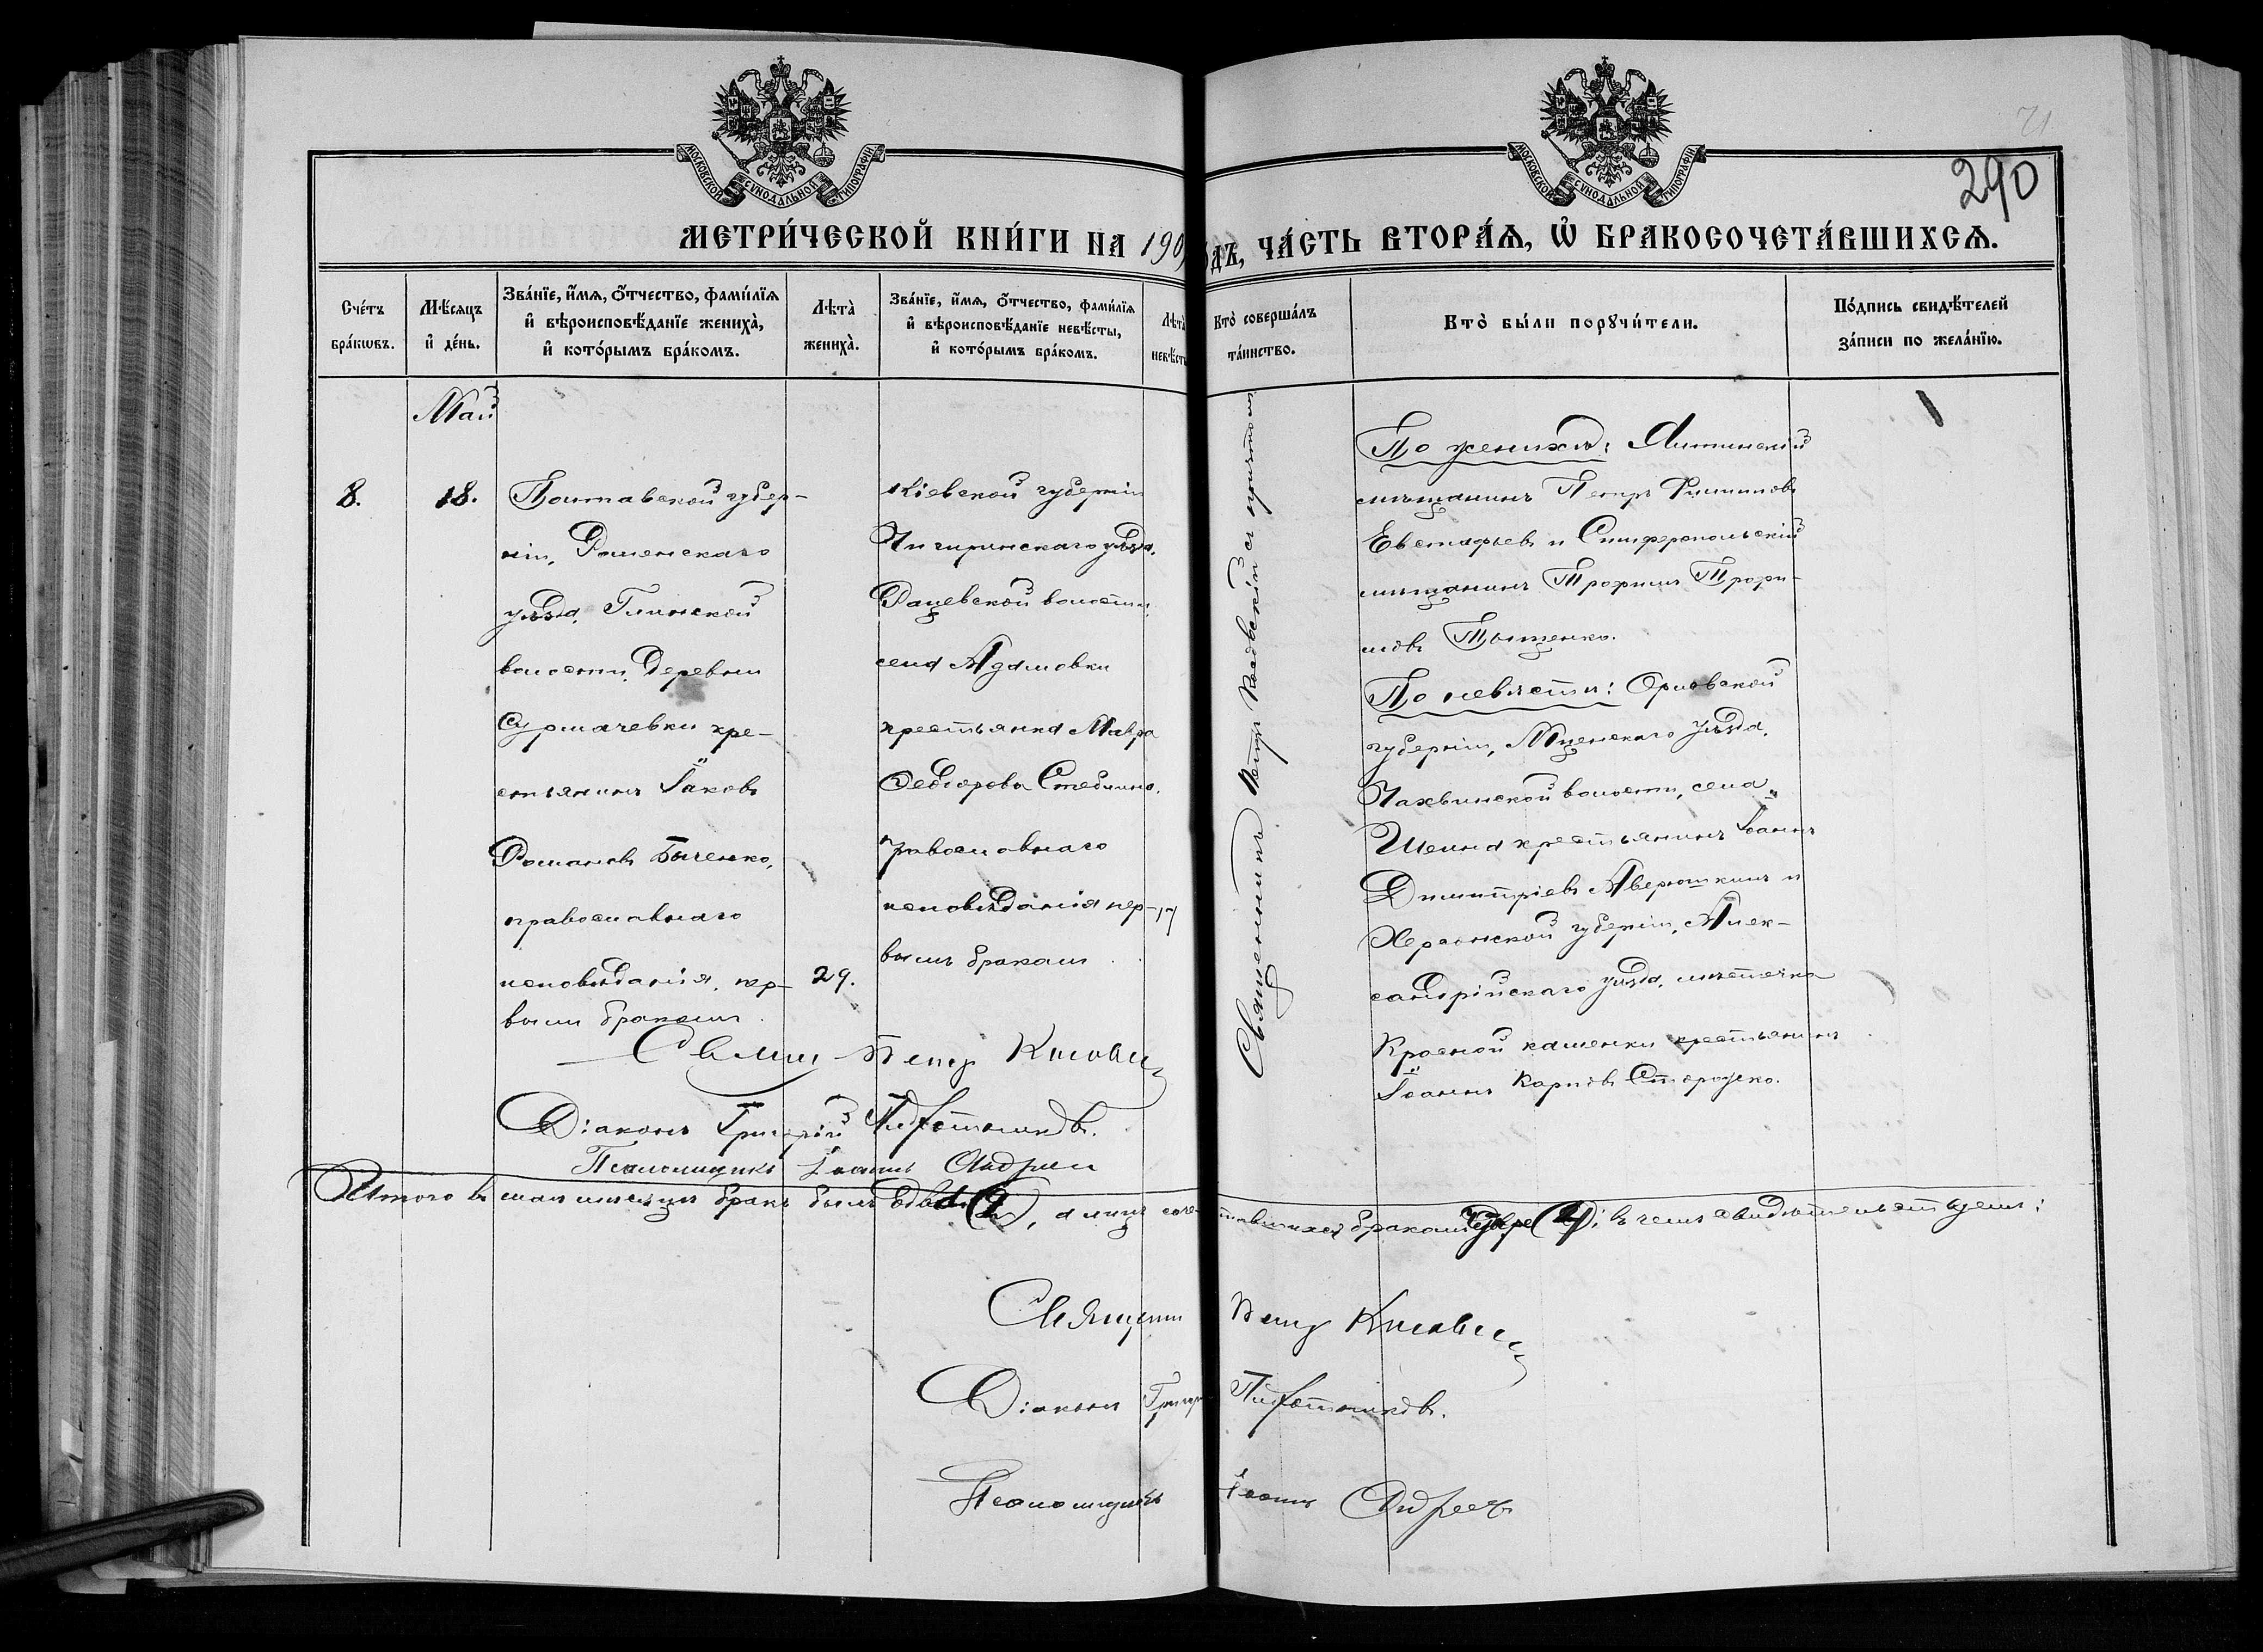 МОСКОВСКОЙ СѴНОДАЛЬНОЙ ТИПОГРАФІИ
МОСКОВСКОЙ СѴНОДАЛЬНОЙ ТИПОГРАФІИ
71
290
МЕТРИ́ЧЕСКОЙ КНИ́ГИ НА 190
ДЪ, ЧА́СТЬ ВТОРА́Я, Ѡ҆ БРАКОСОЧЕТА́ВШИХСЯ.
Сче́тъ
бра́кѡвъ.
Мѣ́сяцъ
и҆ де́нь.
Зва́нїе, и҆́мя, ѻ҆́тчество, фами́лїя
и҆ вѣроисповѣ́данїе жениха̀,
и҆ кото́рымъ бра́комъ.
Лѣта̀
жениха̀.
Зва́нїе, и҆́мя, ѻ҆́тчество, фами́лїя
и҆ вѣроисповѣ́данїе невѣ́сты,
и҆ кото́рымъ бра́комъ.
Лѣта̀
невѣсты
Кто̀ соверша́лъ
та́инство.
Кто̀ бы́ли порꙋчи́тели.
По́дпись свидѣ́телей
за́писи по жела́нїю.
Май
8.
18.
Полтавской губер-
ніи, Роменскаго
уѣзда, Глинской
волости, деревни
Сурмачевки кре-
стьянинъ Іаковъ
Романовъ Быченко,
православнаго
исповѣданія, пер-
вымъ бракомъ.
29.
Кіевской губерніи
Чигиринскаго уѣзда,
Рацевской волости,
села Адамовки
крестьянка Мавра
Ѳеодорова Стеблина,
православнаго
исповѣданія пер-
вымъ бракомъ.
17
Священникъ Петръ Косовскій съ причтомъ
По женихѣ: Ялтинскій
мѣщанинъ Петръ Филиповъ
Евстафьевъ и Симферопольскій
мѣщанинъ Трофимъ Трофи-
мовъ Тыщенко.
По невѣстѣ: Орловской
губерніи, Мценскаго уѣзда,
Чахвинской волости, села
Шеина крестьянинъ Іоаннъ
Димитріевъ Аверюшкинъ и
Херсонской губерніи, Алек-
сандрійскаго уѣзда, мѣстечка
Красной каменки крестьянинъ
Іоаннъ Карповъ Стороженко.
Петръ
Діаконъ Григорій
Псаломщикъ Іоаннъ Андреевъ
Итого въ маѣ мѣсяцѣ бракъ былъ два (2), а лицъ соче-
тавшихся бракомъ четыре (4); въ чемъ свидѣтельствуемъ:
Священникъ Петръ
Діаконъ Григорій
Псаломщикъ Іоаннъ Андреевъ